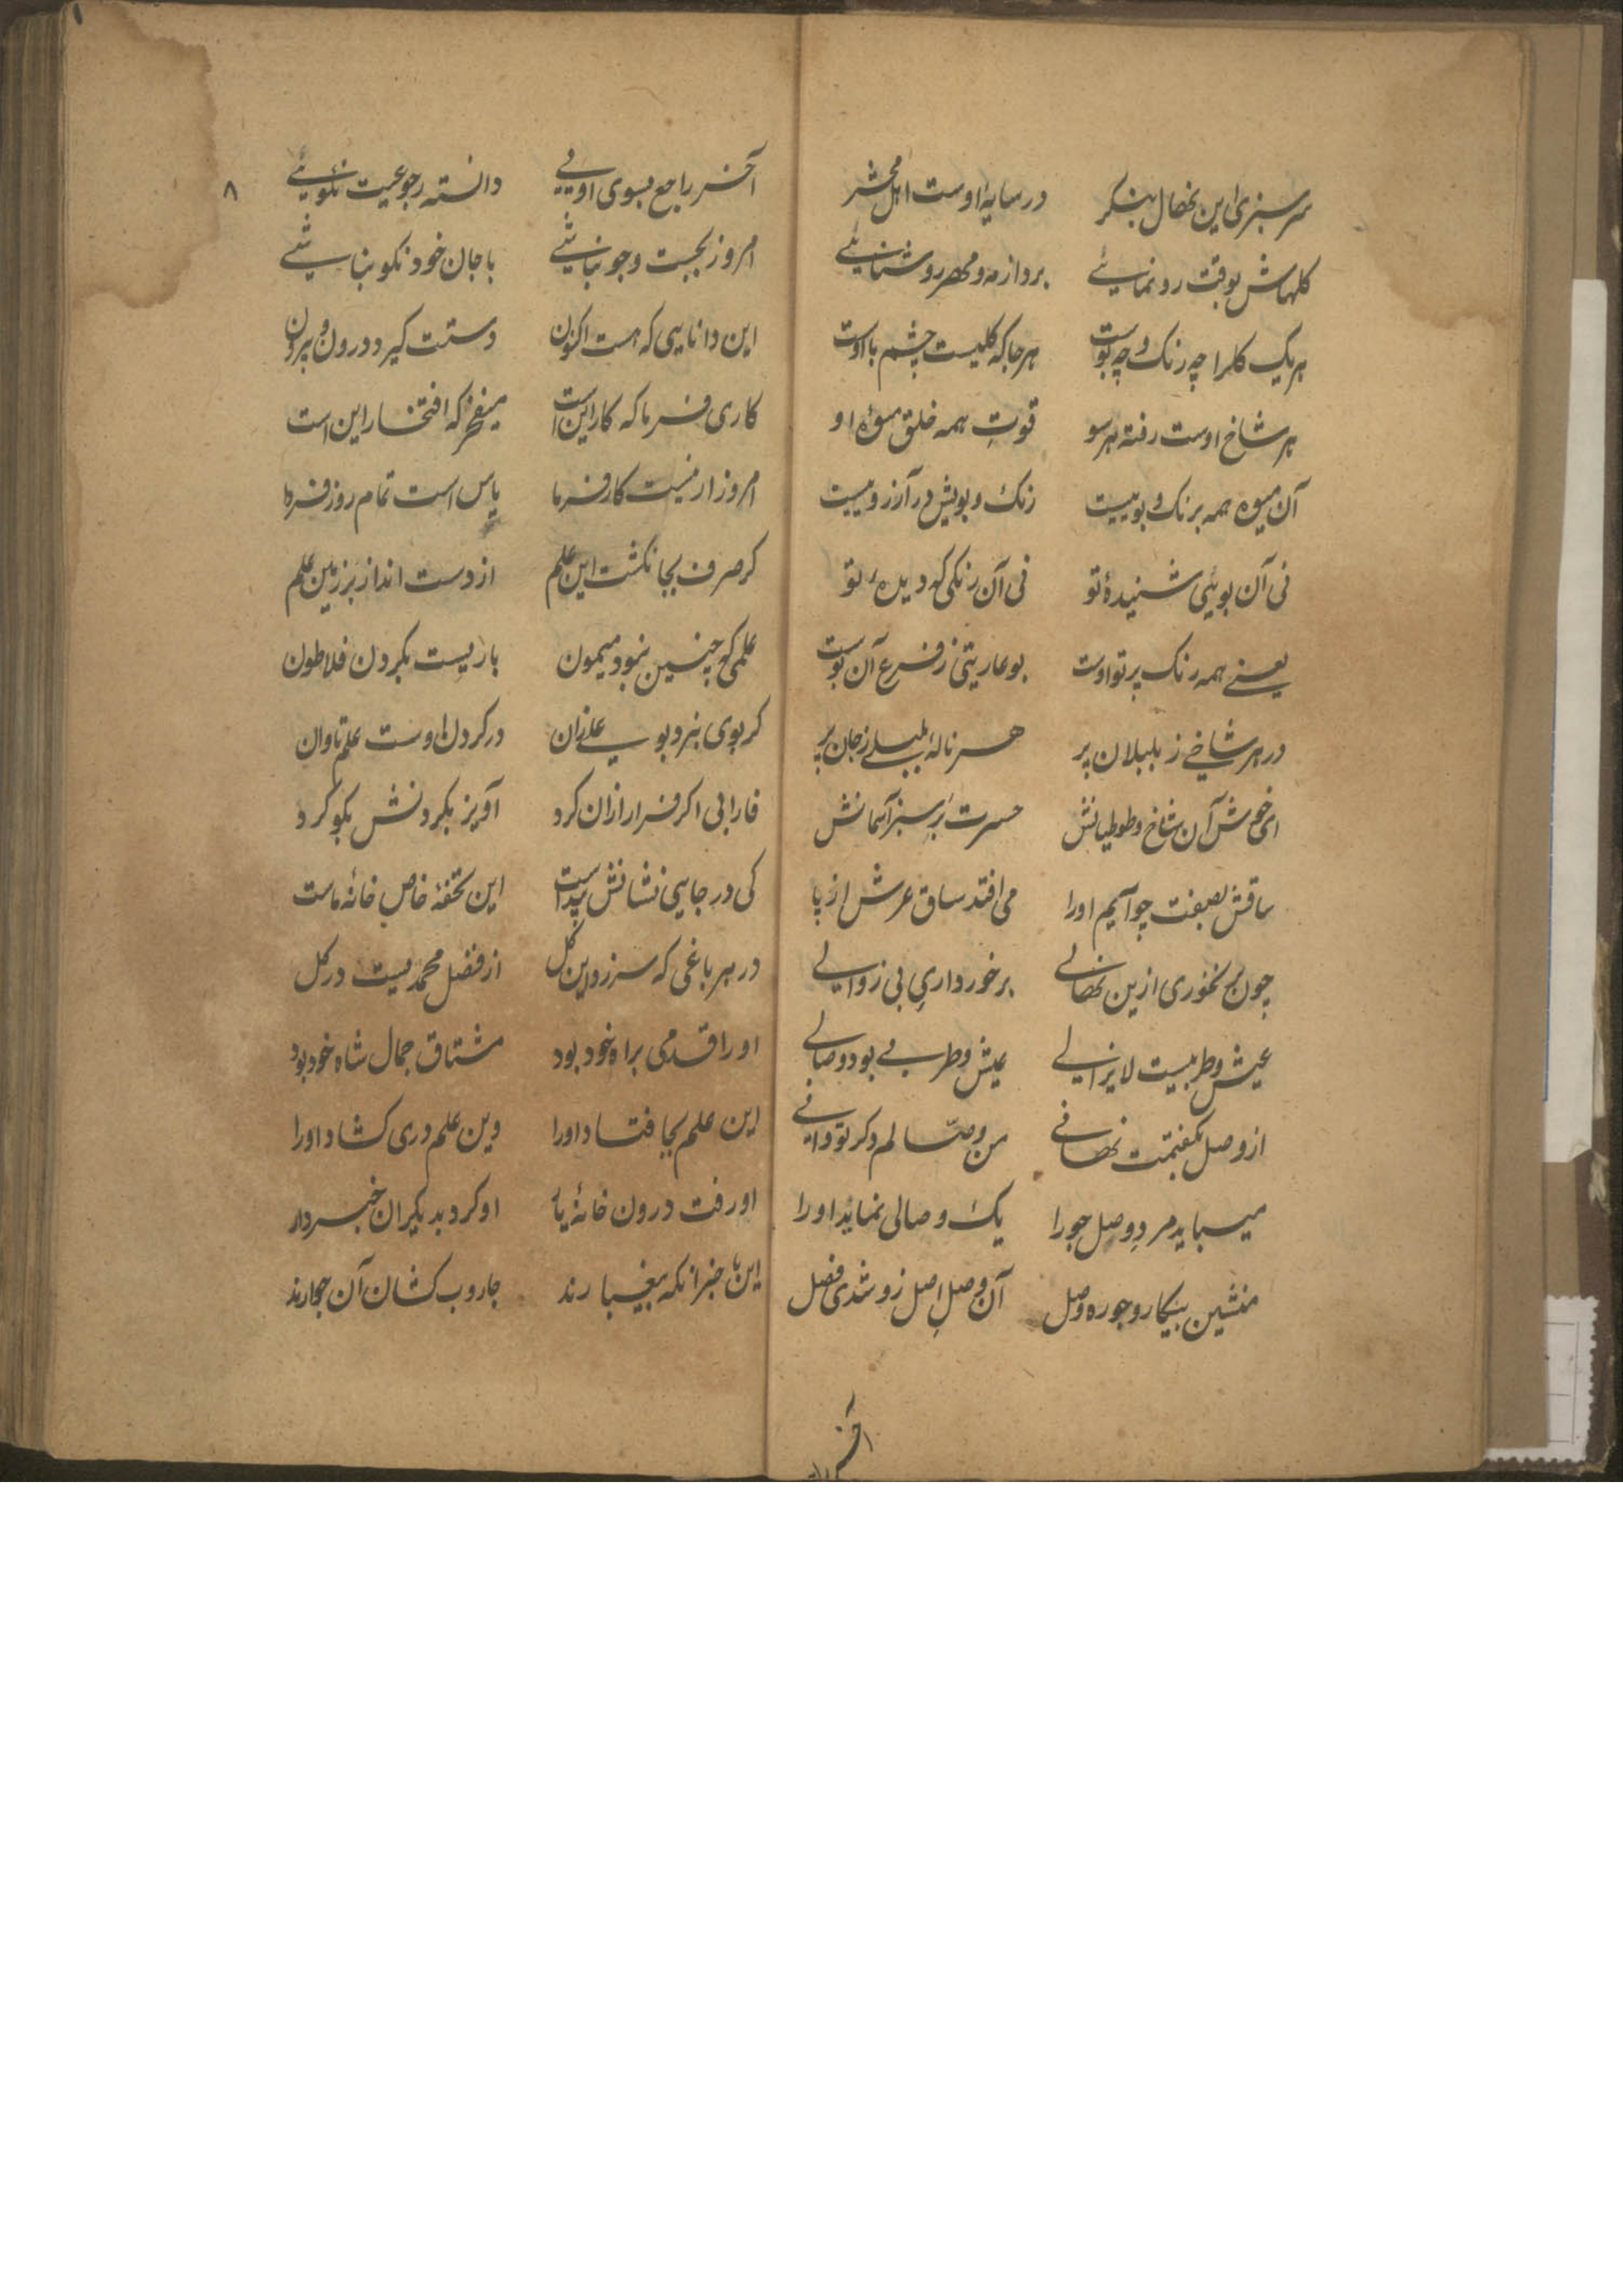 سرسبزی این نهال بنکر در سایه اوست اهل محشر
کلهاش بوقت رونمایئے برد از مه و مهر روشنایئے
هر یک کلرا چه رنک و چه بوست هرجا که کلیست چشم با اوست
هر شاخ اوست رفته هر سو قوتِ همه خلق میوهٔ او
آن میوه همه برنک و بو نیست رنک و بویش در آرزو نیست
نی آن بویی شنیدهٔ تو نی آن رنکی که دیدهٔ تو
یعنے همه رنک پرتو اوست بو عاریتی ز فرع آن بوست
در هر شاخے ز بلبلان پر هر نالهٔ بلبلے ز جان پر
ای خوش آن شاخ و طوطیانش حسرت بر سبز آسمانش
ساقش بصفت چو آیم او را می افتد ساق عرش از پا
چون بر نخوری ازین نهالے برخورداریِ بی زوالے
عیش و طربیست لایزالے عیش و طربے بود وصالے
از وصل بکفتمت نهانے من وصّالم دکر تو دانے
میباید مردِ وصل جو را یک وصالی نماید او را
منشین بیکار و جو ره وصل آن وصلِ اصل زو شدی فصل
آخر
۸
آخر راجع بسوی اویے دانسته رجوعیت نکویئے
امروز بجست و جو نباشے با جان خود نکو نباشے
این دانایی که هست اکنون دستت کیرد درون و بیرون
کاری فرما که کار این است میفخر که افتخار این است
امروز ار نیست کارفرما یاس است تمام روز فردا
کر صرف بجا نکشت این علم از دست انداز بر زمین علم
علمی که چنین نمود میمون باریست بکردن فلاطون
کر بوی نبرد بو علے زان در کردن اوست علم تاوان
فارابی اکر فرار ازان کرد آویز بکردنش بکو کرد
کی در جایی نشانش پیداست این تحفهٔ خاص خانهٔ ماست
در هر باغی که سر زد این کل از فضل محمدیست در کل
او را قدمی براه خود بود مشتاق جمال شاه خود بود
این علم بجا فتاد او را وین علم دری کشاد او را
او رفت درون خانهٔ یار او کرد بدیکران خبردار
این با خبرانکه بیغبارند جاروب کشان آن